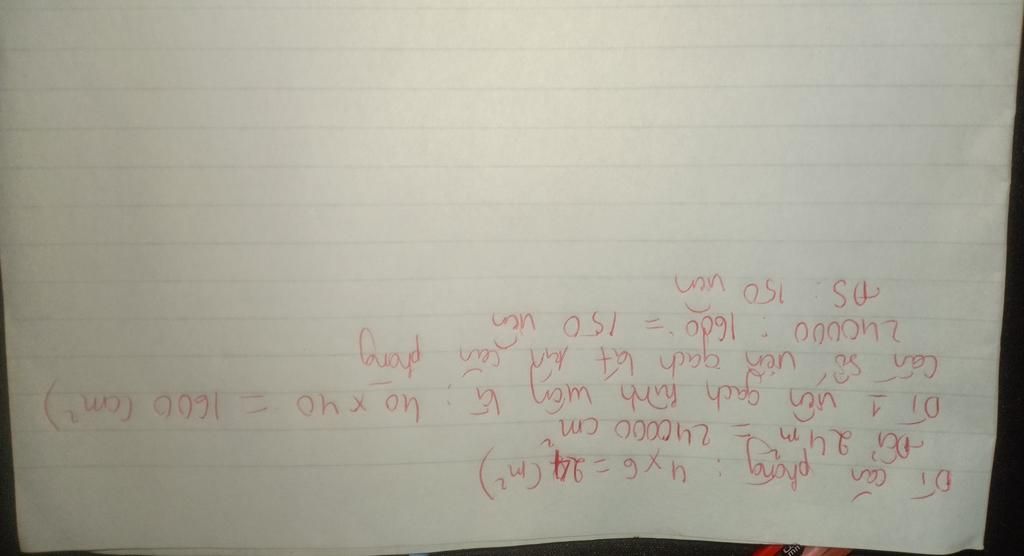 DT căn phòng : 4 x 6 = 24 (m²)
Đổi 24 m² = 240000 cm²
DT 1 viên gạch hình vuông là : 40 x 40 = 1600 (cm²)
Cần số viên gạch lát kín căn phòng
240000 : 1600 = 150 viên
ĐS : 150 viên